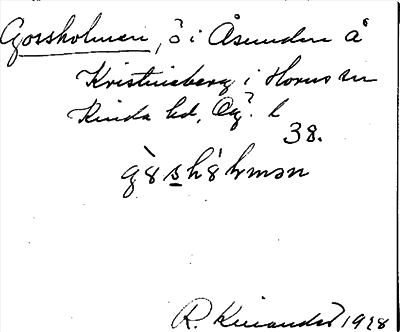 Gossholmen, ö i Åsunden å
Kristineberg i Horns sn
Kinda hd, Ög. l
38.
R. Kinander 1928